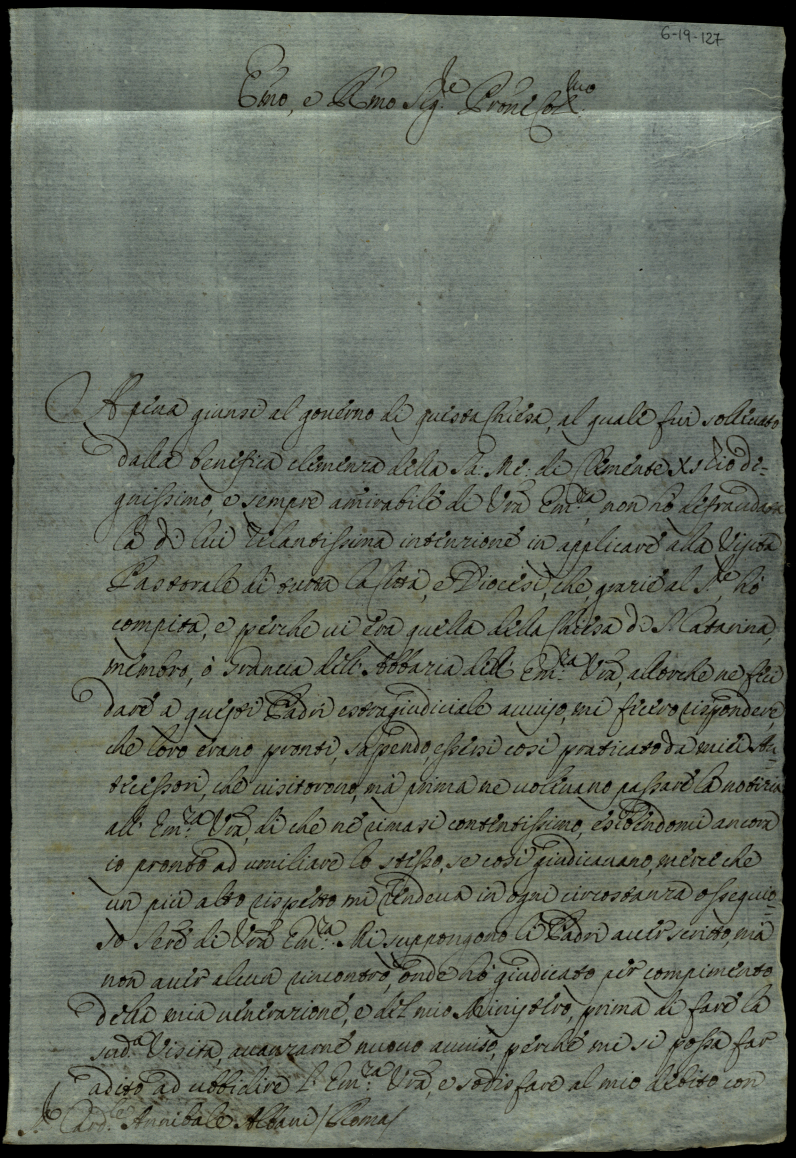 6-19-127
Emo, e Rmo Sig.re Prone Col.mo
Apena giunse al governo di questa Chiesa, al quale fui sollevato
dalla benefica clemenza della Sa: Me: di Clemente XI Zio de=
gnissimo, e sempre amirabile di Vra Em.za non hò defraudata
la di lui zelantissima intenzione in applicare alla Visita
Pastorale di tutta la Città, e Diocesi, che, grazie al S.re, hò
compita, e perche vi era quella della Chiesa di Matarina,
membro, ò Grancia dell'Abbazia dell'Em.za Vra, allorche ne feci
dare a questi Padri estragiudiciale avviso, mi fecero rispondere,
che loro erano pronti, sapendo, essersi così praticato da miei An=
tecessori, che visitorono, mà prima ne volevano passare la notizia
all'Em.za Vra, di che nè rimasi contentissimo, esibendomi ancora
io pronto ad umiliare lo stesso, se così giudicavano, mercè che
un più alto rispetto mi rendeva in ogni circostanza ossequio=
so Ser.e di Vra Em.za. Mi suppongono li Padri aver scritto, mà
non aver alcun rincontro, onde hò giudicato per compimento
della mia venerazione, e del mio Ministero, prima di fare la
sud.a Visita, avanzarne nuovo avviso, perchè me si possa far
adito ad ubbidire l'Em.za Vra, e sodisfare al mio debito con
S.r Card.le Annibale Albani /Roma/